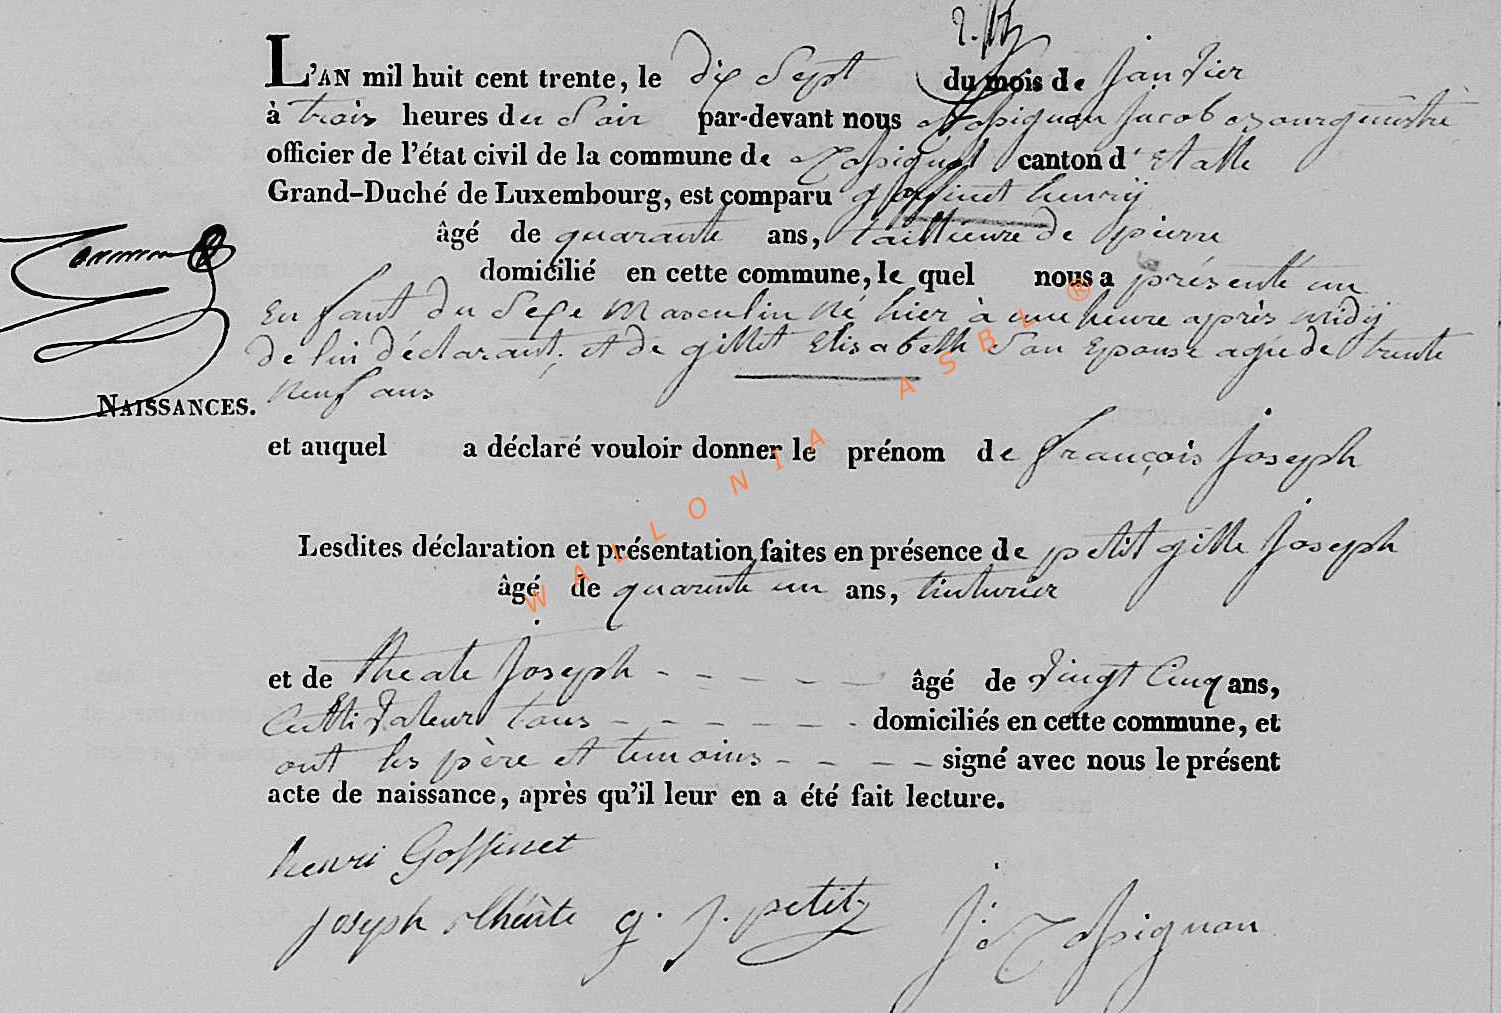 L'AN mil huit cent trente, le dix Sept du mois de janvier
à trois heures du Soir par-devant nous jacob bourguemstre
officier de l'état civil de la commune de canton d' Etalle
Grand-Duché de Luxembourg, est comparu goffinet henrij
âgé de quarante ans, taillieure de pierre
domicilié en cette commune, le quel nous a présenté un
Enfant du Sexe Masculin Né hier à une heure après midij
de lui déclarant, et de gillet Elisabeth Son Epouse agée de trente
neuf ans
NAISSANCES.
et auquel a déclaré vouloir donner le prénom de françois Joseph
Lesdites déclaration et présentation faites en présence de petit gille Joseph
âgé de quarente un ans, tinturier
et de Joseph - - - - - âgé de Vingt Cinq ans,
Cultivateur tous - - - - - - domiciliés en cette commune, et
ont les père et temoins - - - - signé avec nous le présent
acte de naissance, après qu'il leur en a été fait lecture.
henri Goffinet
joseph g. J. petit J:
WALLONIA ASBL ®